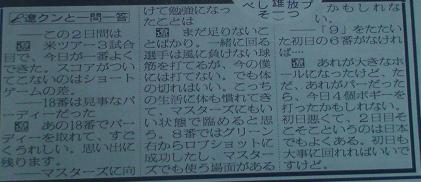 遼クンと一問一答
――この２日間は
遼 米ツアー３試合
目で、今日が一番よく
できた。スコアがつい
てこないのはショート
ゲームの差。
――18番は見事なバ
ーディーだった
遼 あの18番でバー
ディーを取れて、すご
くうれしい。思い出に
残ります。
――マスターズに向
けて勉強になっ
たことは
遼 まだ足りないこ
とばかり。一緒に回る
選手は風に負けない球
筋を打てるが、今の僕
には打てない。でも体
の切れはいい。こっち
の生活に体も慣れてき
て、マスターズにもい
い状態で臨めると思
う。８番ではグリーン
右からロブショットに
成功したし、マスター
ズでも使う場面がある
かもしれな
い。
――「９」をたたい
た初日の６番がなけれ
ば…
遼 あれが大きなボ
ールになったけど、た
だ、あれがパーだった
ら、今日４個ボギーを
打ったかもしれない。
初日悪くて、２日目そ
こそこというのは日本
でもよくある。初日も
大事に回れればいいで
すけど。
べし雄放プ
そ一つ